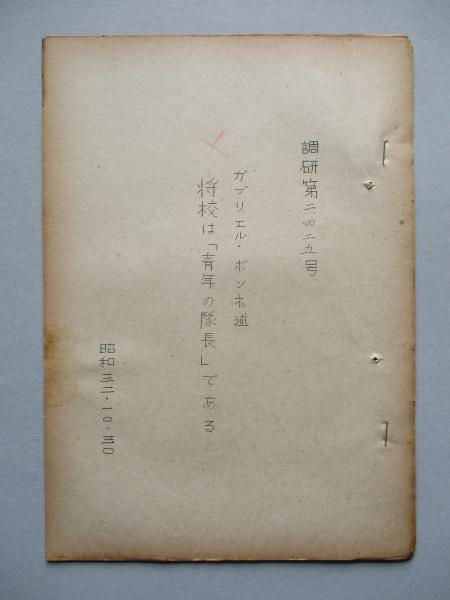 調研第二四二五号
ガブリエル・ボンネ述
将校は「青年の隊長」である
昭和三二・一〇・三〇